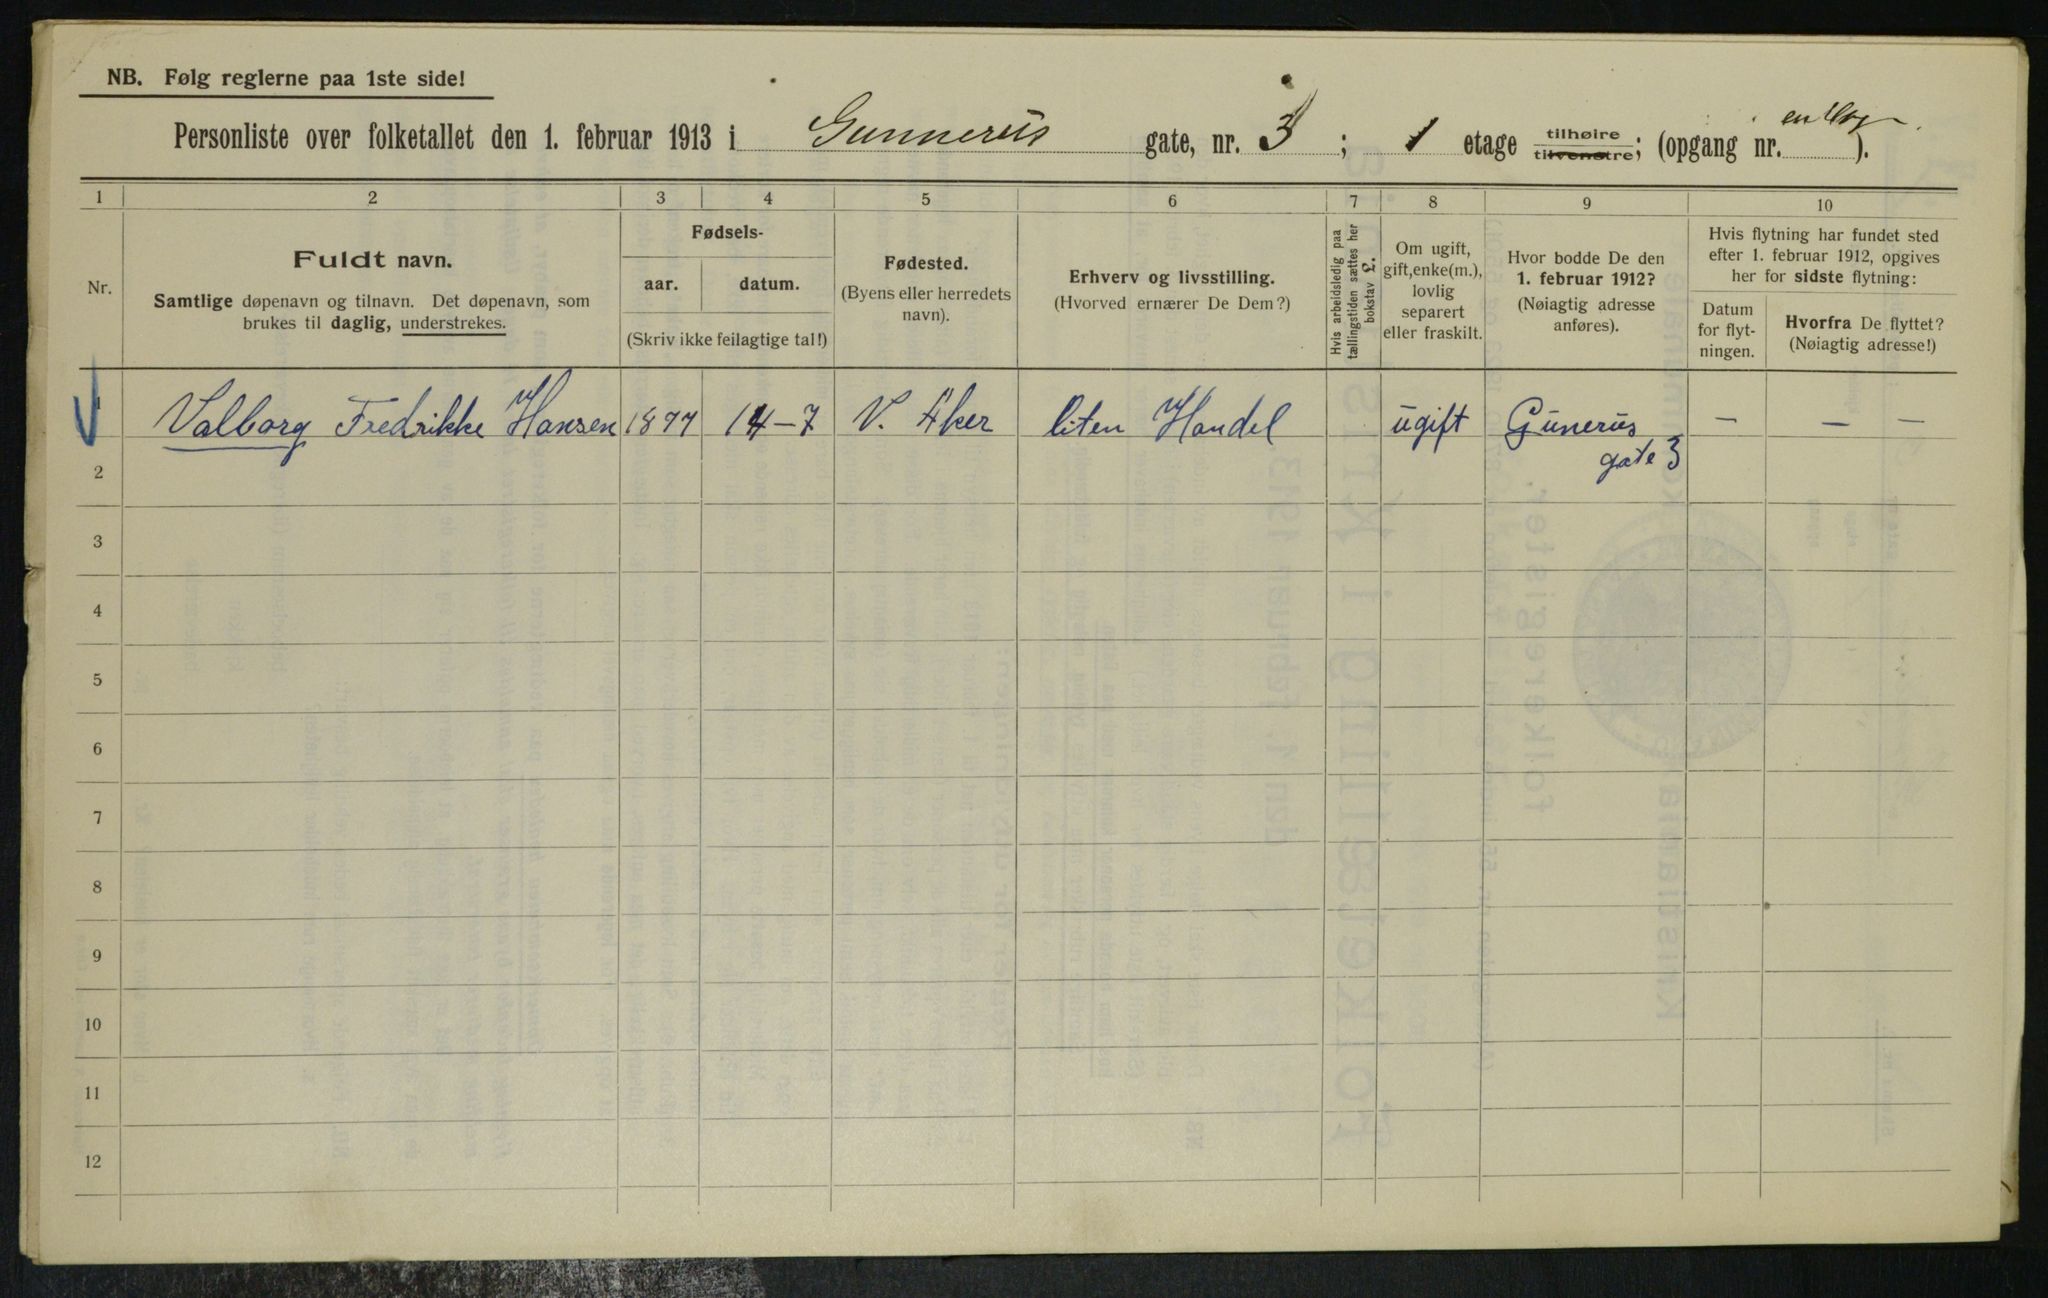 NB. Følg reglerne paa 1ste side!
Personliste over folketallet den 1. februar 1913 i Gunnerus gate, nr. 3 ; 1 etage tilhøire tilvenstre; (opgang nr. ).
1 2 3 4 5 6 7 8 9 10
Nr.
Fuldt navn.
Samtlige døpenavn og tilnavn. Det døpenavn, som
brukes til daglig, understrekes.
Fødsels-
aar. datum.
(Skriv ikke feilagtige tal!)
Fødested.
(Byens eller herredets
navn).
Erhverv og livsstilling.
(Hvorved ernærer De Dem?)
Hvis arbeidsledig paa
tællingstiden sættes her
bokstav £.
Om ugift,
gift, enke(m.),
lovlig
separert
eller fraskilt.
Hvor bodde De den
1. februar 1912?
(Nøiagtig adresse
anføres).
Hvis flytning har fundet sted
efter 1. februar 1912, opgives
her for sidste flytning:
Datum
for flyt-
ningen.
Hvorfra De flyttet?
(Nøiagtig adresse!)
1 Valborg Fredrikke Hansen 1877 14-7 V. Aker liten Handel ugift Gunerus — — —
gate 3
2
3
4
5
6
7
8
9
10
11
12